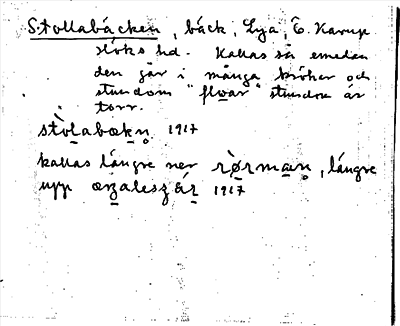 Stollabäcken, bäck, Lya, Ö. Karup
Höks hd. Kallas så emedan
den går i många krökar och
stundom "floar" stundom är
torr.
stòlabækn̥ 1917
kallas längre ner rørmæn̥, längre
upp 1917